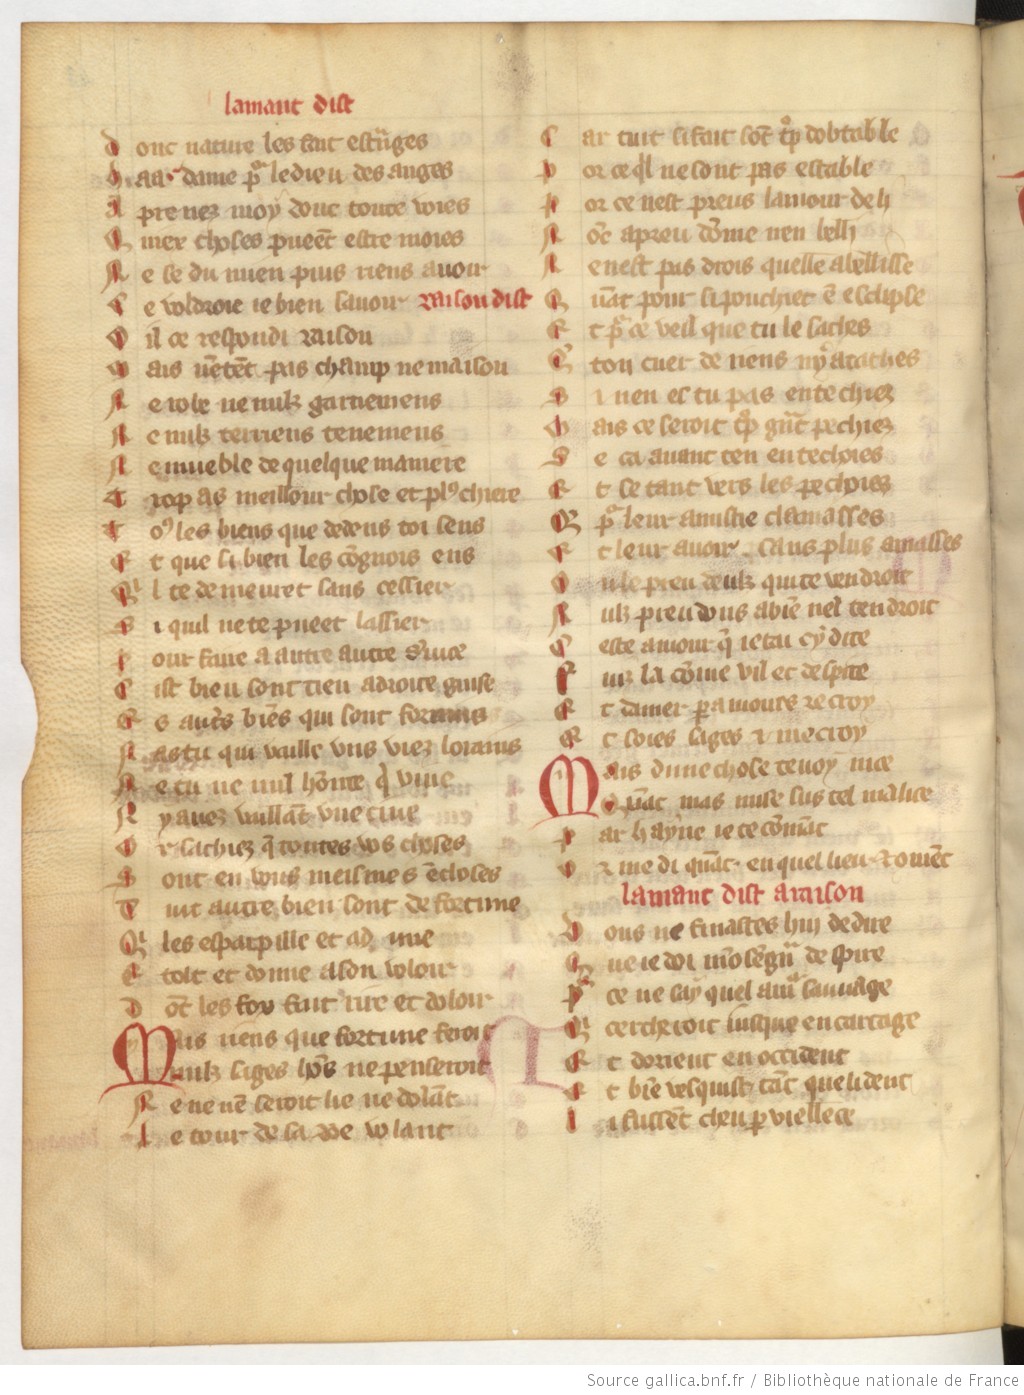 lamant dist
D onc nature les fait estrãges
H aa dame pͬ le dieu des anges
A prenez moy donc toute voies
Q uiex choses pueẽt estre moies
N e se du mien puis riens auoir
C e voldroie ie bien sauoir raison dist
O il ce respondi raison
M ais nẽtẽt pas champ ne maison
N e robe ne nulz garnemens
N e nulz terriens tenemens
N e mueble de quelque maniere
T rop as meillour chose et plꝰ chiere
T oꝰ les biens que dedens toi sens
E t que si bien les cõgnois ens
Q i te demeuret sans cessier
S i quil ne te pueet lassier
P our faire a autre autre s̃uice
C ist bien sont tien a droite guise
E s autˢ biẽs qui sont forains
N as tu qui vaille vns viez lorains
N e tu ne nul hõme q̃ viue
N y auez vaillãt vne ciue
C r sachiez q̃ toutes vos choses
S ont en vous meismes ẽcloses
T uit autre bien sont de fortune
Q i les esparpille et aune
E tolt et donne a son voloir
D õt les fox fait rire et doloir
M ais riens que fortune feroit
nulz sages hõs ne penseroit
N e ne nẽ seroit lie ne dolãt
L e tour de sa roe volant
C ar tuit si fait sõt tͦp dobtable
P or ce ql̃ ne sont pas estable
P or ce nest preus lamour de li
N õc a preudõme nen belli
N e nest pas drois quelle abellisse
Q uãt pour si pou chiet ẽ esclipse
E t pͬ ce veil que tu le saches
Q ton cuer de riens ny ataches
S i nen es tu pas entechiez
M ais ce seroit tͦp gñt pechiez
S e ca auant ten entechoies
E t se tant vers les pechoiez
Q pͬ leur amis te clamasses
E t leur auoir sans plus amasses
O u le preu deulz qui te vendroit
N ulz preudons a biẽ nel tendroit
C este amour q̃ ie tai cy dite
F uiz la cõme vil et despite
E t damer par amours recroy
E t soies sages et me croy
M ais dune chose te voy nice
Quãt mas mise sus tel malice
P ar hayne ie te cõmãt
O r me di quãt en quel lieu et cõmẽt
lamant dist a raison
V ous ne finastes hui de dire
Q ue ie doi mõ segñr despire
P͛ ce ne say quel amͬ sauuage
Q i cercheroit iusque en cartage
E t dorient en occident
E t biẽ vesquist tãt que li dent
L i fussẽt cheu par viellece